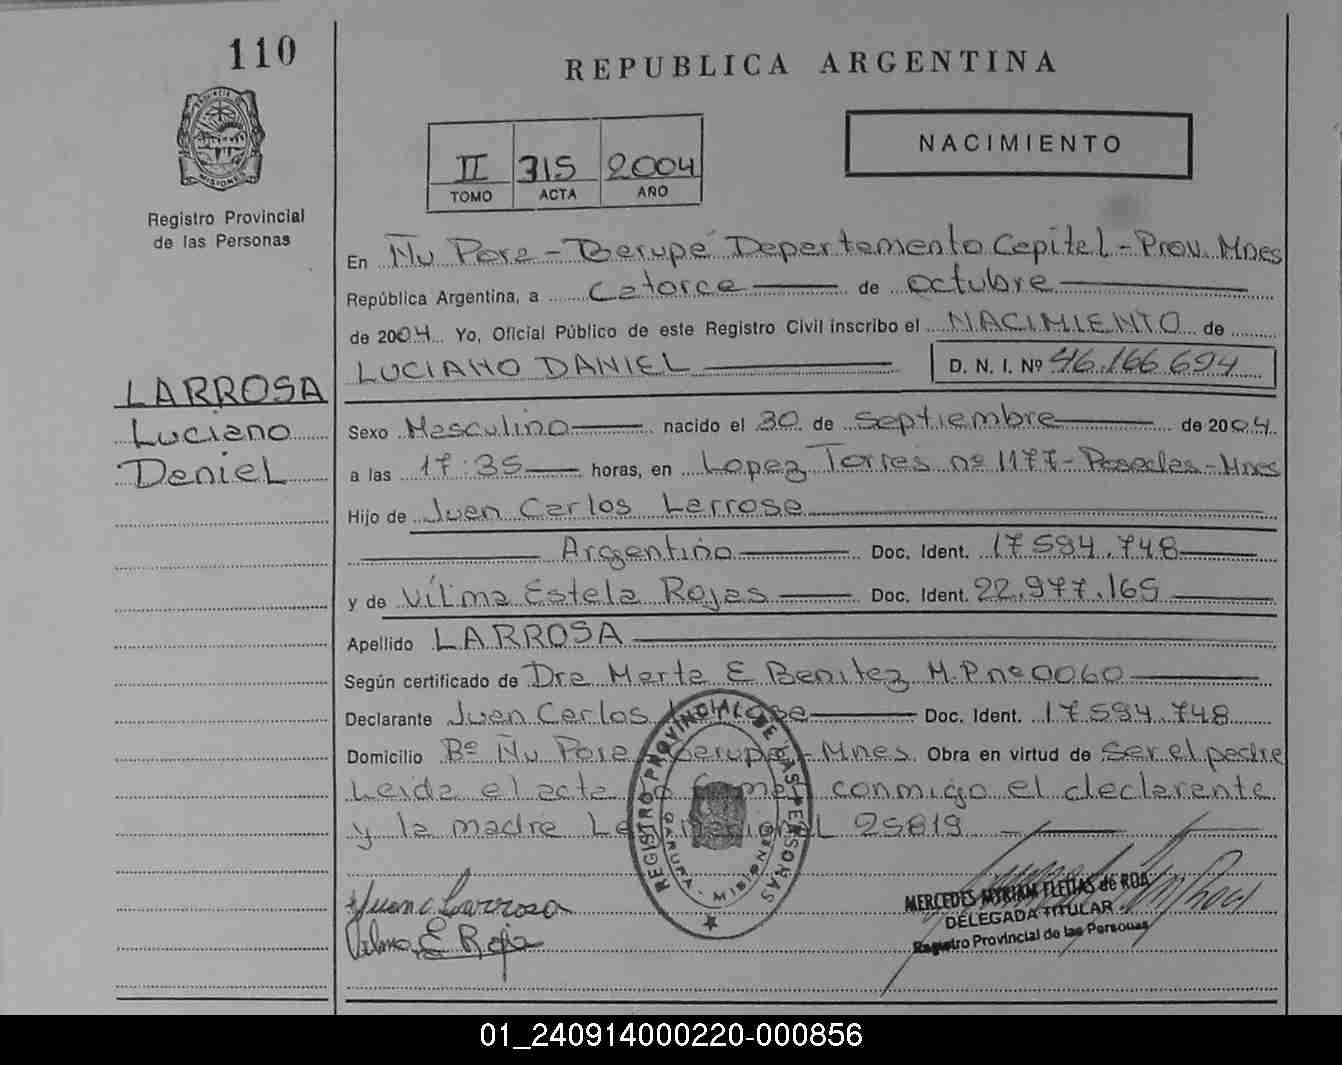 110
REPUBLICA ARGENTINA
PROVINCIA DE
MISIONES
Registro Provincial
de las Personas
II 315 2004
TOMO ACTA AÑO
NACIMIENTO
En Ñu Pora - Garupé Departamento Capital - Prov. Mnes
República Argentina, a catorce de octubre
de 2004. Yo, Oficial Público de este Registro Civil inscribo el NACIMIENTO de
LUCIANO DANIEL D. N. I. Nº 46.166.694
LARROSA
Luciano
Daniel
Sexo Masculino nacido el 30 de septiembre de 2004.
a las 17:35 horas, en Lopez Torres nº 1177 - Posadas - Mnes
Hijo de Juan Carlos Larrosa
Argentino Doc. Ident. 17.594.748
y de Vilma Estela Rojas Doc. Ident. 22.977.165
Apellido LARROSA
Según certificado de Dra Marta E Benitez M.P. nº 0060
Declarante Juan Carlos Doc. Ident. 17.594.748
Domicilio Bº Ñu Pora Garupa - Mnes. Obra en virtud de ser el padre
Leida el acta conmigo el declarante
y la madre 25819
REGISTRO PROVINCIAL DE LAS PERSONAS
GARUPA - MISIONES
Juan C Larrosa
Vilma E Roja
MERCEDES MYRIAM FLEITAS de ROA
DELEGADA TITULAR
Registro Provincial de las Personas
01_240914000220-000856